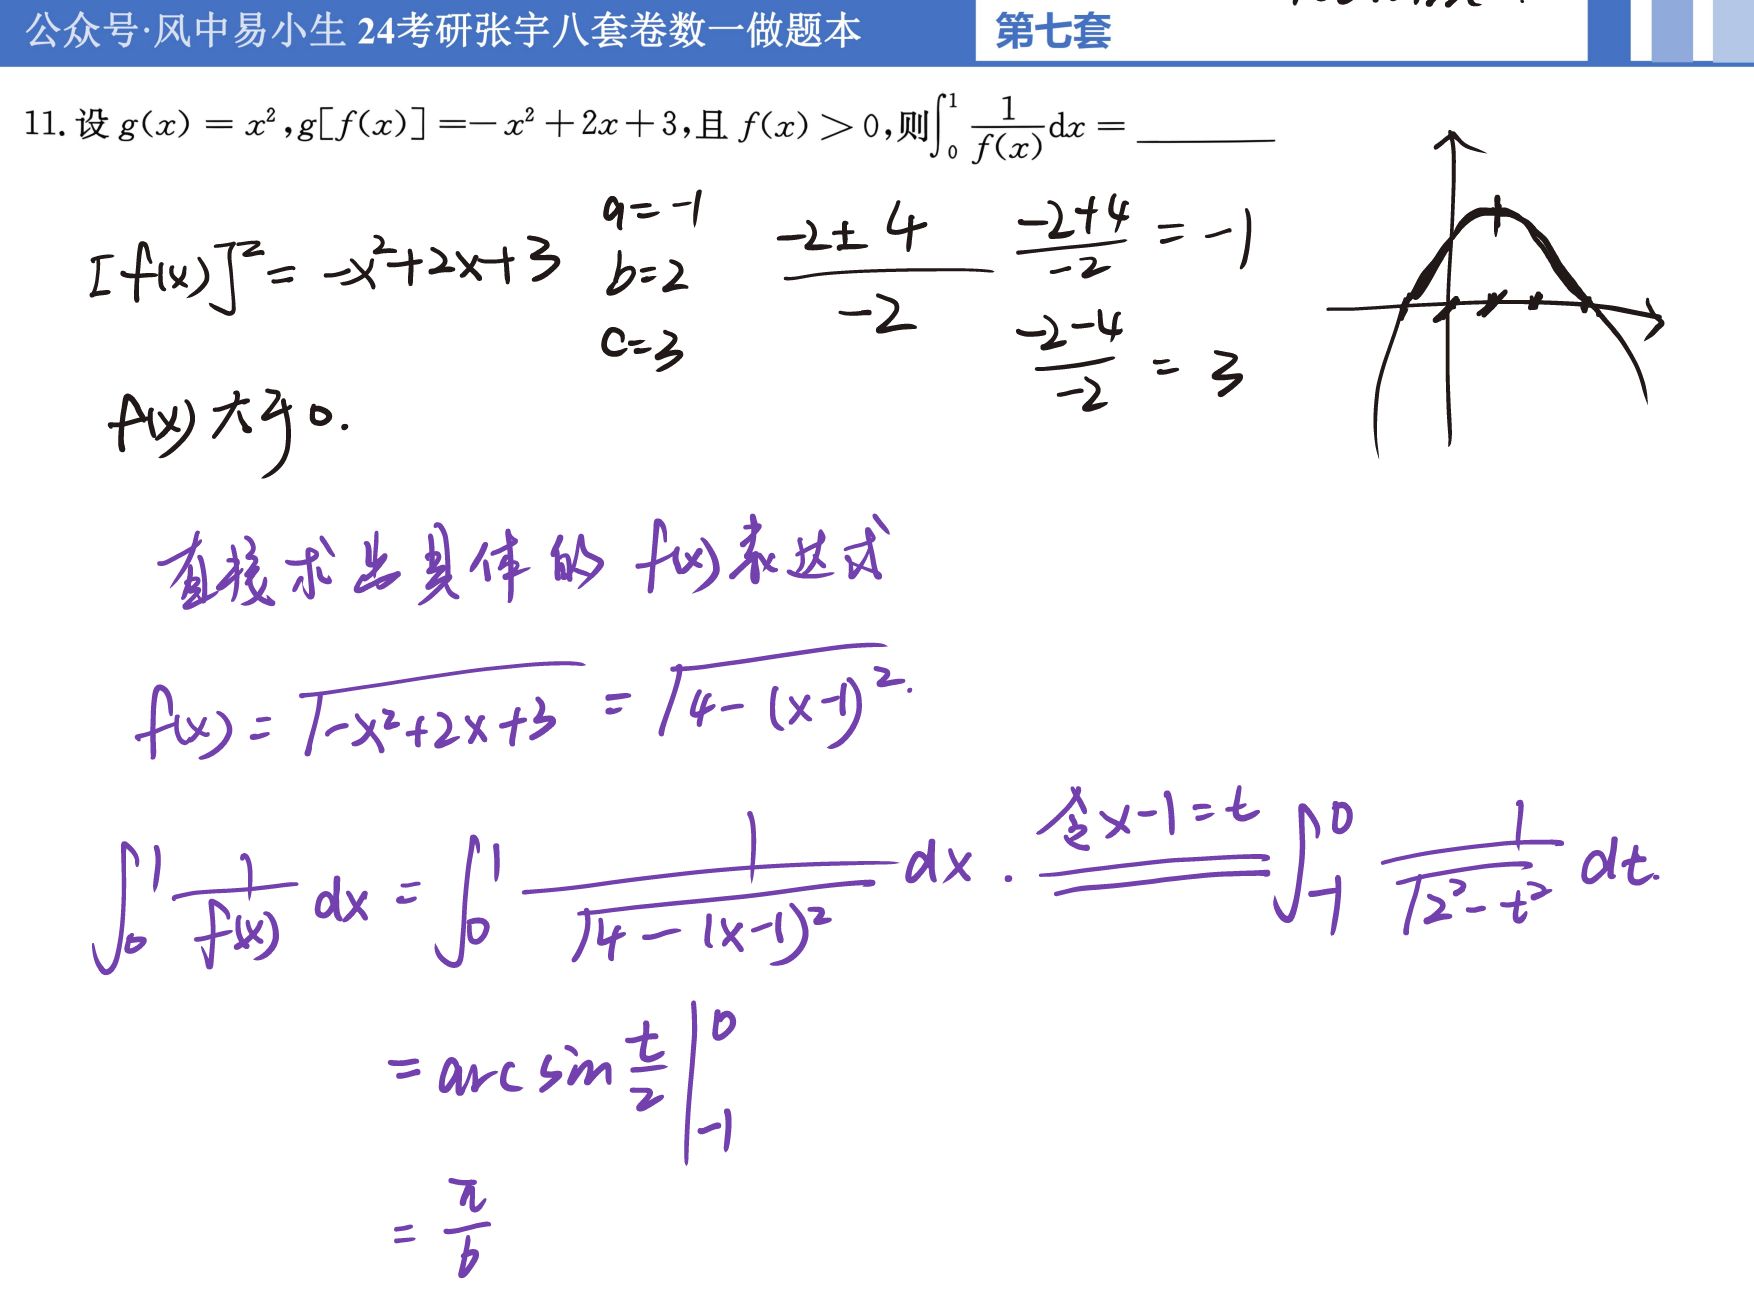 公众号·风中易小生 24考研张宇八套卷数一做题本 第七套
11. 设 g(x) = x², g[f(x)] = -x² + 2x + 3, 且 f(x) > 0, 则∫₀¹ 1/f(x) dx = ______
[f(x)]² = -x²+2x+3
a=-1
b=2
c=3
(-2±4)/(-2)
(-2+4)/(-2) = -1
(-2-4)/(-2) = 3
f(x)大于0.
直接求出具体的 f(x)表达式
f(x) = √(-x²+2x+3) = √(4-(x-1)²).
∫₀¹ 1/f(x) dx = ∫₀¹ 1/√(4-(x-1)²) dx. 令x-1=t ∫₋₁⁰ 1/√(2²-t²) dt.
= arcsin t/2 |₋₁⁰
= π/6